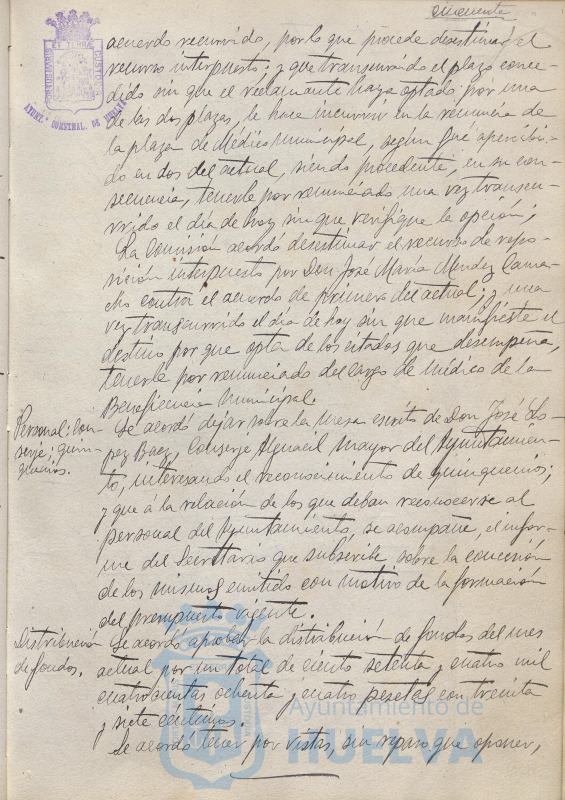 cincuenta
AYUNT.º CONSTNAL. DE HUELVA
acuerdo recurrido, por lo que procede desestimar el
recurso interpuesto; y que transcurriendo el plazo conce-
dido sin que el reclamante haya optado por una
de las dos plazas, le hace incurrir en la renuncia de
la plaza de Médico Municipal, según fué apercibi-
do en dos del actual, siendo procedente, en su con-
secuencia, tenerle por renunciado una vez transcu-
rrido el día de hoy sin que verifique la opción;
La Comisión acordó desestimar el recurso de repo-
sición interpuesto por Don José María Mendez Cama-
cho contra el acuerdo de primero del actual; y una
vez transcurrido el día de hoy sin que manifieste el
destino por que opta de los citados que desempeña,
tenerle por renunciado del cargo de Médico de la
Beneficencia Municipal.
Personal: Con-
serje; quin-
quenios.
Se acordó dejar sobre la mesa escrito de Don José Ló-
pez Baez, Conserje Alguacil mayor del Ayuntamien-
to, interesando el reconocimiento de quinquenios;
y que á la relación de los que deban reconocerse al
personal del Ayuntamiento, se acompañe, el infor-
me del Secretario que subscribe sobre la concesión
de los mismos emitido con motivo de la formación
del presupuesto vigente.
Distribución
de fondos.
Se acordó aprobar la distribución de fondos del mes
actual, por un total de ciento setenta y cuatro mil
cuatrocientas ochenta y cuatro pesetas con treinta
y siete céntimos.
Se acordó tener por vistas, sin reparo que oponer,
Ayuntamiento de
HUELVA